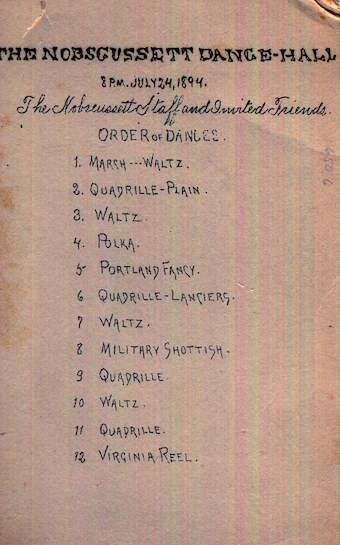 THE NOBSCUSSETT DANCE-HALL
8 P.M. JULY 24, 1894.
The Nobscussett Staff and Invited Friends.
ORDER OF DANCES.
1. MARCH---WALTZ.
2. QUADRILLE-PLAIN.
3. WALTZ.
4. POLKA.
5 PORTLAND FANCY.
6 QUADRILLE-LANCIERS.
7 WALTZ.
8 MILITARY SHOTTISH.
9 QUADRILLE.
10 WALTZ.
11 QUADRILLE.
12 VIRGINIA REEL.